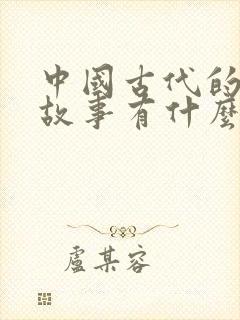 中國古代的
故事有什麼
盧某容